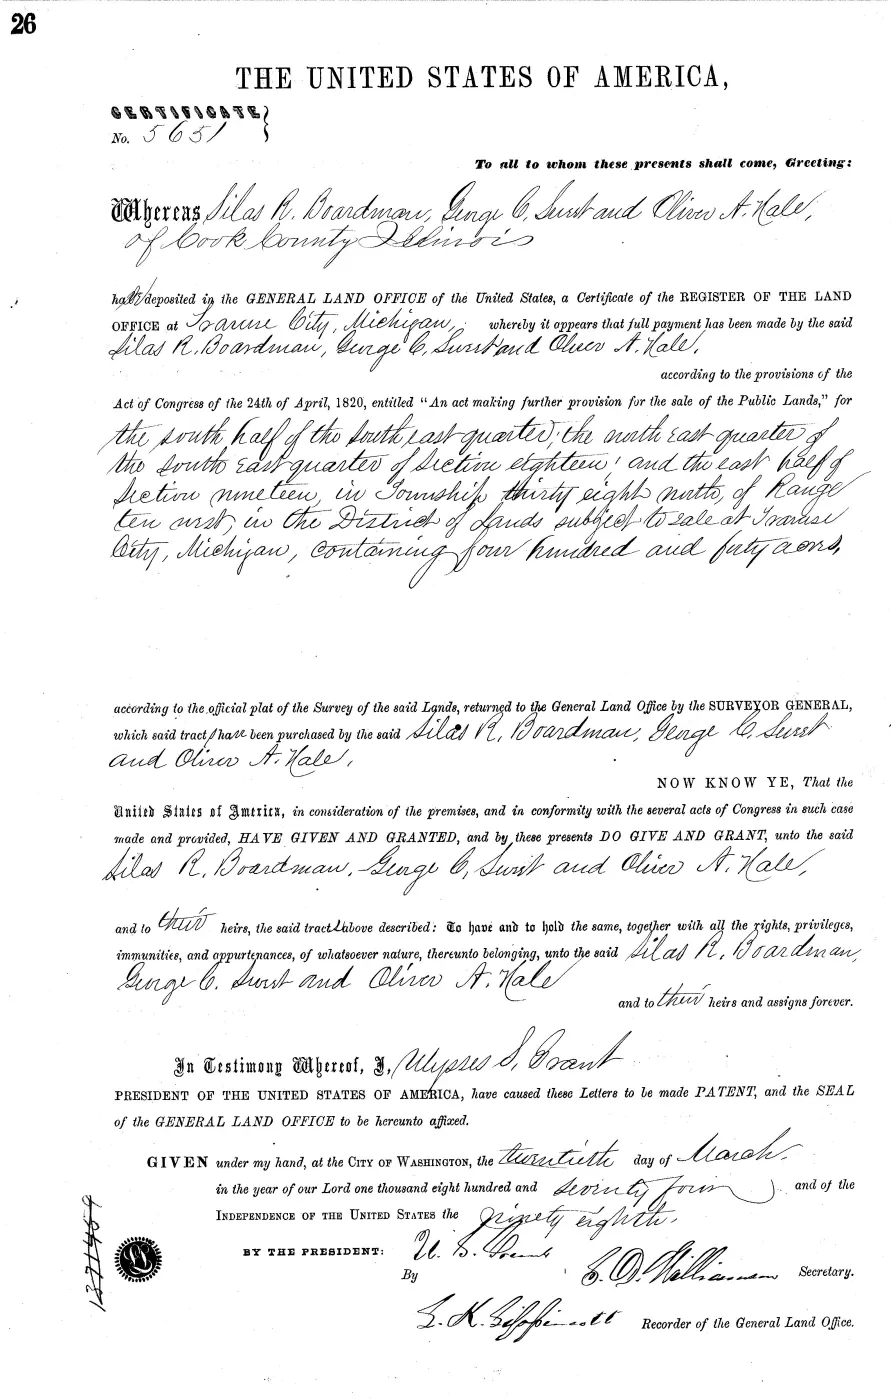 26
THE UNITED STATES OF AMERICA,
CERTIFICATE
No. 5651
To all to whom these presents shall come, Greeting:
Whereas Silas R. Boardman, George C. Swest and Oliver A. Hale,
of Cook County Illinois
have deposited in the GENERAL LAND OFFICE of the United States, a Certificate of the REGISTER OF THE LAND
OFFICE at Traverse City, Michigan, whereby it appears that full payment has been made by the said
Silas R. Boardman, George C. Swest and Oliver A. Hale,
according to the provisions of the
Act of Congress of the 24th of April, 1820, entitled "An act making further provision for the sale of the Public Lands," for
the south half of the South east quarter; the north East quarter of
the South East quarter of Section eighteen; and the east half of
Section nineteen, in Township thirty eight north, of Range
ten west, in the District of Lands subject to sale at Traverse
City, Michigan, containing four hundred and forty acres,
according to the official plat of the Survey of the said Lands, returned to the General Land Office by the SURVEYOR GENERAL,
which said tracts have been purchased by the said Silas R. Boardman, George C. Swest
and Oliver A. Hale,
NOW KNOW YE, That the
United States of America, in consideration of the premises, and in conformity with the several acts of Congress in such case
made and provided, HAVE GIVEN AND GRANTED, and by these presents DO GIVE AND GRANT, unto the said
Silas R. Boardman, George C. Swest and Oliver A. Hale,
and to their heirs, the said tracts above described: To have and to hold the same, together with all the rights, privileges,
immunities, and appurtenances, of whatsoever nature, thereunto belonging, unto the said Silas R. Boardman,
George C. Swest and Oliver A. Hale
and to their heirs and assigns forever.
In Testimony Whereof, I, Ulysses S. Grant
PRESIDENT OF THE UNITED STATES OF AMERICA, have caused these Letters to be made PATENT, and the SEAL
of the GENERAL LAND OFFICE to be hereunto affixed.
GIVEN under my hand, at the CITY OF WASHINGTON, the twentieth day of March
in the year of our Lord one thousand eight hundred and seventy four, and of the
INDEPENDENCE OF THE UNITED STATES the ninety eighth.
BY THE PRESIDENT: U. S. Grant
By S. D. Williamson Secretary.
L. K. Lippincott Recorder of the General Land Office.
LS